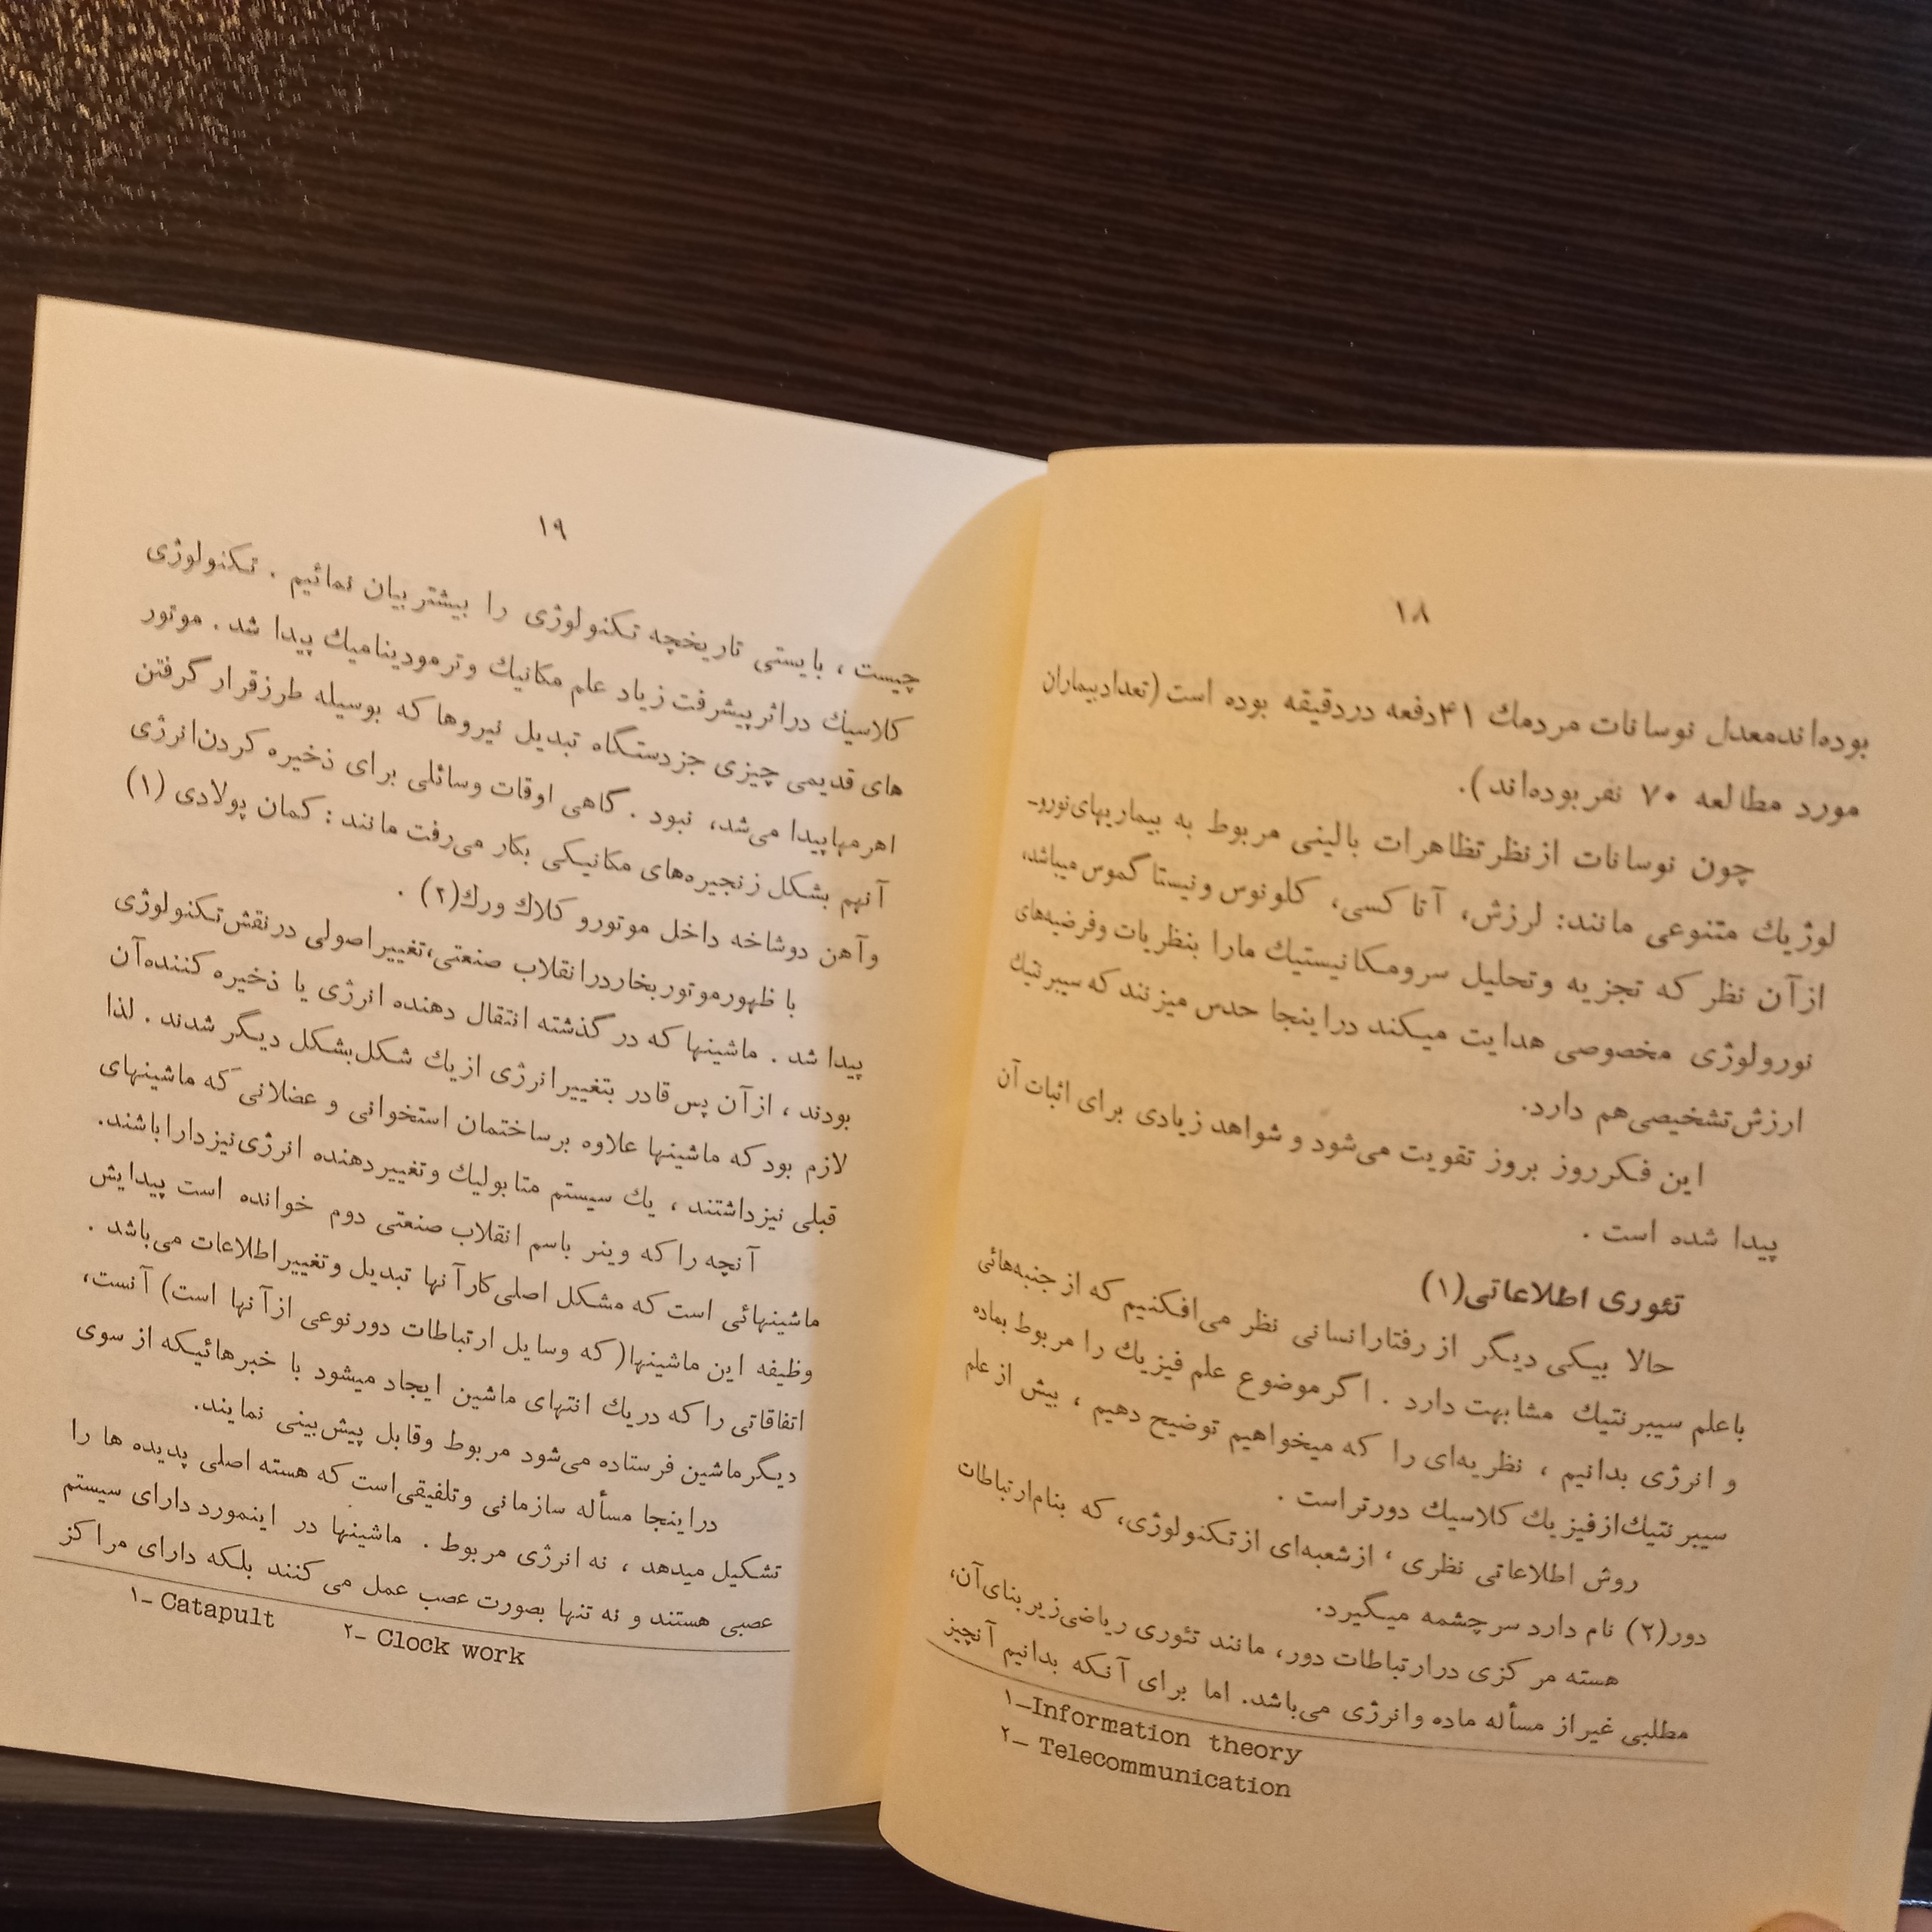 ۱۸
بوده‌اندمعدل نوسانات مردمك ۴۱دفعه دردقیقه بوده است (تعدادبیماران
مورد مطالعه ۷۰ نفربوده‌اند).
چون نوسانات ازنظرتظاهرات بالینی مربوط به بیماریهای‌نورو-
لوژیك متنوعی مانند: لرزش، آتاکسی، کلونوس ونیستاگموس میباشد،
ازآن نظر که تجزیه وتحلیل سرومکانیستیك مارا بنظریات وفرضیه‌های
نورولوژی مخصوصی هدایت میکند دراینجا حدس میزنند که سیبرنتیك
ارزش‌تشخیصی‌هم دارد.
این فکرروز بروز تقویت می‌شود و شواهد زیادی برای اثبات آن
پیدا شده است .
تئوری اطلاعاتی(۱)
حالا بیکی دیگر از رفتارانسانی نظر می‌افکنیم که از جنبه‌هائی
باعلم سیبرنتیك مشابهت دارد . اگرموضوع علم فیزیك را مربوط بماده
و انرژی بدانیم ، نظریه‌ای را که میخواهیم توضیح دهیم ، بیش از علم
سیبرنتیك‌ازفیزیك کلاسیك دورتراست .
روش اطلاعاتی نظری ، ازشعبه‌ای ازتکنولوژی، که بنام‌ارتباطات
دور(۲) نام دارد سرچشمه میگیرد.
هسته مرکزی درارتباطات دور، مانند تئوری ریاضی‌زیربنای‌آن،
مطلبی غیراز مسأله ماده وانرژی می‌باشد. اما برای آنکه بدانیم آنچیز
۱_Information theory
۲_ Telecommunication
۱۹
چیست ، بایستی تاریخچه تکنولوژی را بیشتربیان نمائیم . تکنولوژی
کلاسیك دراثرپیشرفت زیاد علم مکانیك وترمودینامیك پیدا شد . موتور
های قدیمی چیزی جزدستگاه تبدیل نیروها که بوسیله طرزقرار گرفتن
اهرمهاپیدا می‌شد، نبود . گاهی اوقات وسائلی برای ذخیره کردن‌انرژی
آنهم بشکل زنجیره‌های مکانیکی بکار می‌رفت مانند : کمان پولادی (۱)
وآهن دوشاخه داخل موتورو کلاك ورك(۲) .
با ظهورموتوربخاردرانقلاب صنعتی،تغییراصولی درنقش‌تکنولوژی
پیدا شد . ماشینها که در گذشته انتقال دهنده انرژی یا ذخیره کننده‌آن
بودند ، ازآن پس قادر بتغییرانرژی ازیك شکل‌بشکل دیگر شدند . لذا
لازم بود که ماشینها علاوه برساختمان استخوانی و عضلانی که ماشینهای
قبلی نیزداشتند ، یك سیستم متابولیك وتغییردهنده انرژی‌نیزداراباشند.
آنچه را که وینر باسم انقلاب صنعتی دوم خوانده است پیدایش
ماشینهائی است که مشکل اصلی‌کارآنها تبدیل وتغییراطلاعات می‌باشد .
وظیفه این ماشینها( که وسایل ارتباطات دورنوعی ازآنها است) آنست،
اتفاقاتی را که دریك انتهای ماشین ایجاد میشود با خبرهائیکه از سوی
دیگرماشین فرستاده می‌شود مربوط وقابل پیش‌بینی نمایند.
دراینجا مسأله سازمانی وتلفیقی‌است که هسته اصلی پدیده ها را
تشکیل میدهد ، نه انرژی مربوط . ماشینها در اینمورد دارای سیستم
عصبی هستند و نه تنها بصورت عصب عمل می کنند بلکه دارای مراکز
۱_ Catapult ۲_ Clock work